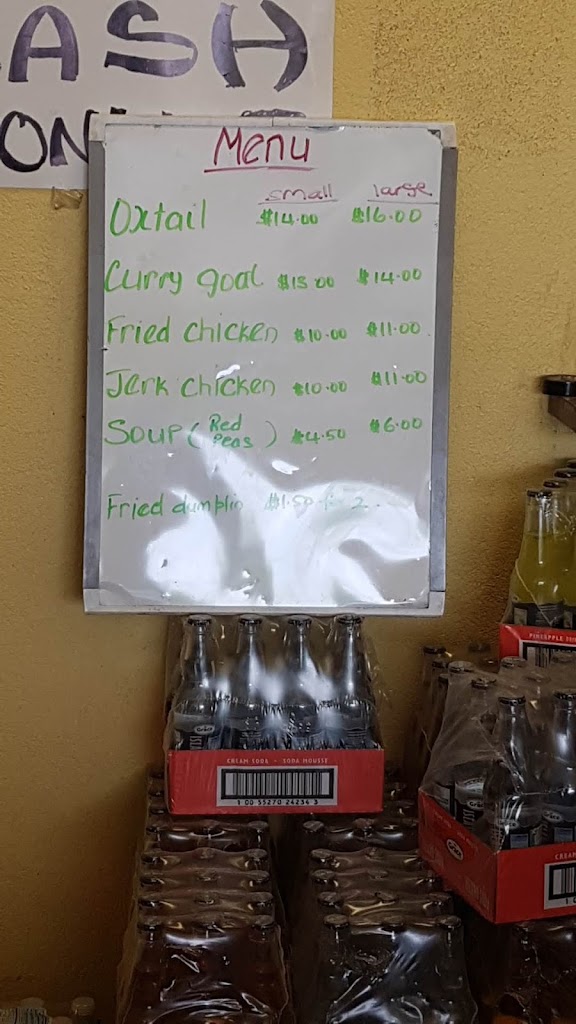 CASH
ONLY
Menu
small large
Oxtail $14.00 $16.00
Curry goat $13.00 $14.00
Fried chicken $10.00 $11.00
Jerk chicken $10.00 $11.00
Soup (Red Peas) $4.50 $6.00
Fried dumplin $1.50 for 2
PINEAPPLE
CREAM SODA - SODA MOUSSE
1 00 55270 24234 3
Grace
CREAM